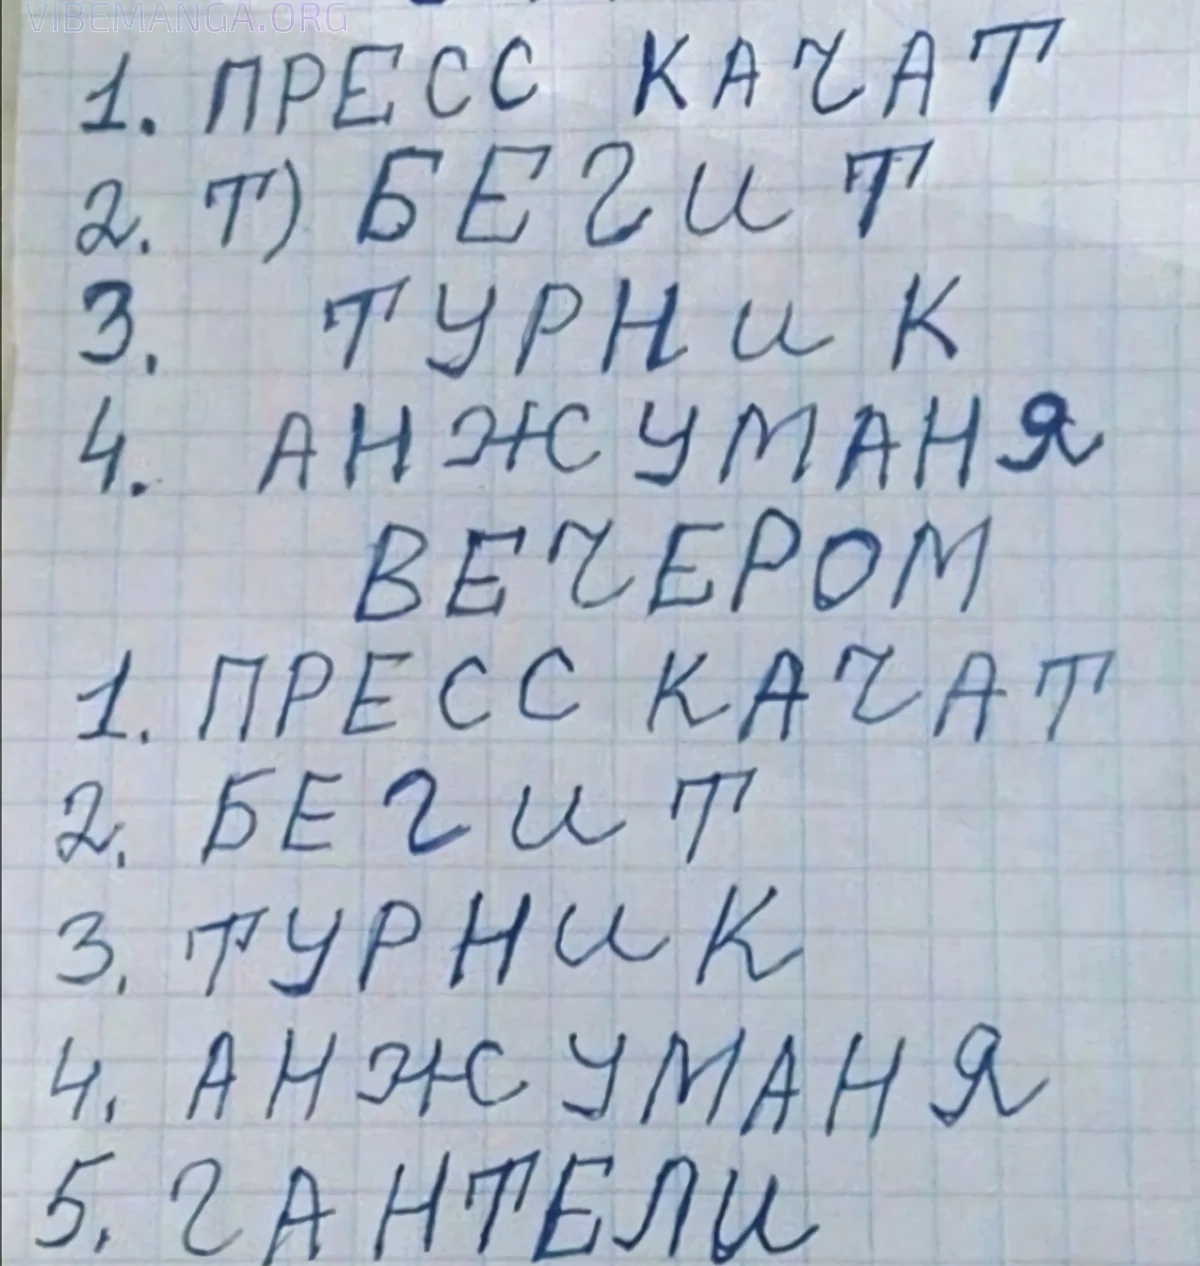 VIBEMANGA.ORG
1. ПРЕСС КАЧАТ
2. Т) БЕГИТ
3. ТУРНИК
4. АНЖУМАНЯ
ВЕЧЕРОМ
1. ПРЕСС КАЧАТ
2. БЕГИТ
3. ТУРНИК
4. АНЖУМАНЯ
5. ГАНТЕЛИ